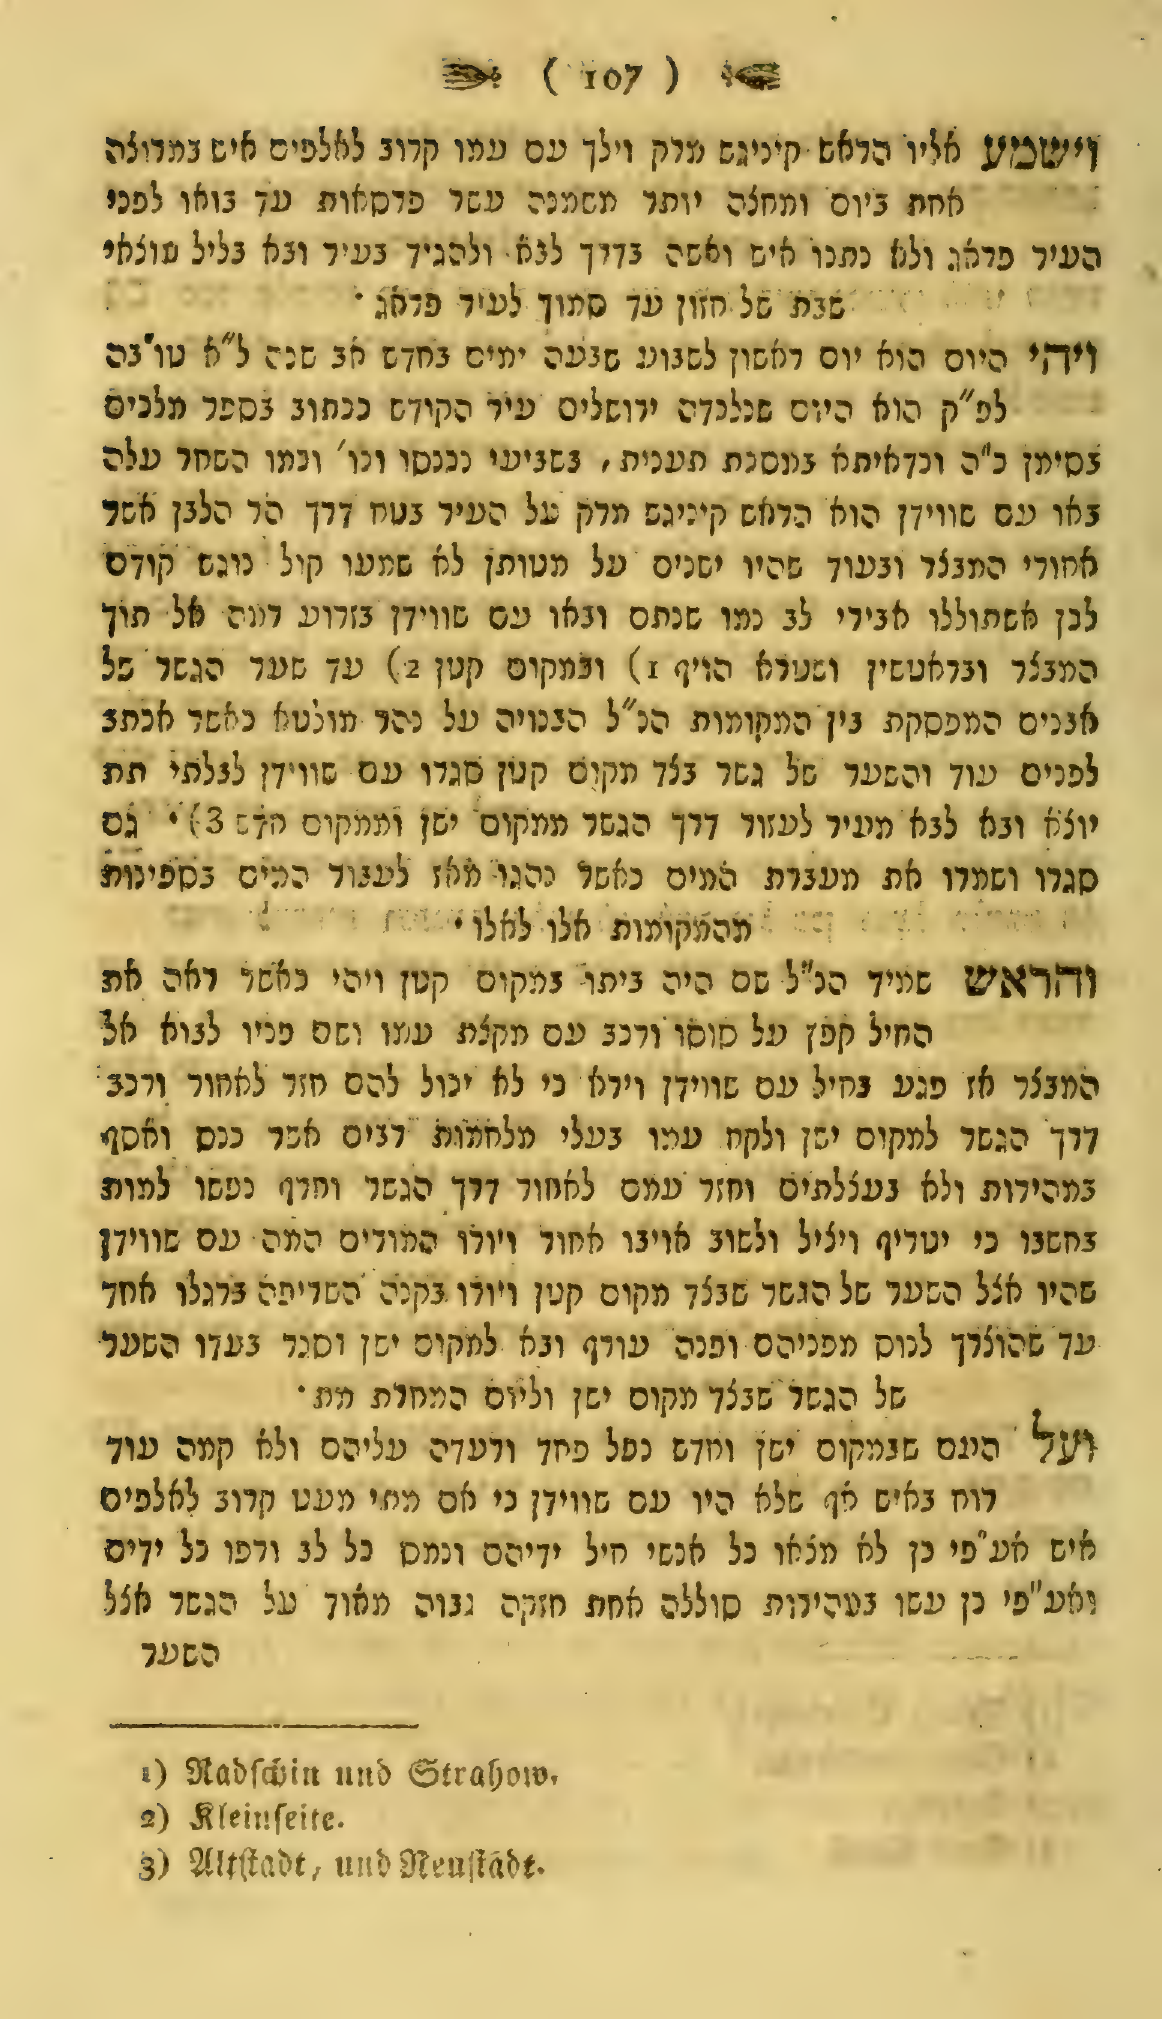 ( 107 )
וישמע אליו הראש קיניגס מרק וילך עם עמו קרוב לאלפים איש במרוצה
אחת ביום ומחצה יותר משמנה עשר פרסאות עד בואו לפני
העיר פראג ולא נתנו איש ואשה בדרך לבא ולהגיד בעיר ובא בליל מוצאי
שבת של חזון עד סמוך לעיר פראג ·
ויהי היום הוא יום ראשון לשבוע שבעה ימים בחדש אב שנה ל״א טו״בה
לפ״ק הוא היום שנלכדה ירושלים עיר הקודש ככתוב בספר מלכים
בסימן כ״ה וכדאיתא במסכת תענית, בשביעי נכנסו וכו׳ וכמו השחר עלה
באו עם שווידן הוא הראש קיניגס מרק על העיר בטח דרך הר הלבן אשר
אחורי המבצר ובעוד שהיו ישנים על מטותן לא שמעו קול נוגש קודם
לכן אשתוללו אבירי לב נמו שנתם ובאו עם שווידן בזרוע רמה אל תוך
המבצר ובראטשין ושטרא הויף 1) ובמקום קטן 2) עד שער הגשר של
אבנים המפסקת בין המקומות הנ״ל הבנויה על נהר מולטא כאשר אכתב
לפנים עוד והשער של גשר בצד מקום קטן סגרו עם שווידן לבלתי תת
יוצא ובא לבא מעיר לעזור דרך הגשר ממקום ישן וממקום חדש 3) · גם
סגרו ושמרו את מעברת המים כאשר נהגו מאז לעבור המים בספינות
מהמקומות אלו לאלו ·
והראש שמיד הנ״ל שם היה ביתו במקום קטן ויהי כאשר ראה את
החיל קפץ על סוסו ורכב עם מקצת עמו ושם פניו לבוא אל
המבצר אז פגע בחיל עם שווידן וירא כי לא יכול להם חזר לאחור ורכב
דרך הגשר למקום ישן ולקח עמו בעלי מלחמות רבים אשר כנס ואסף
במהירות ולא בעצלתים וחזר עמם לאחור דרך הגשר וחרף נפשו למות
בחשבו כי יטריף ויציל ולשוב אויבו אחור ויורו המורים המה עם שווידן
שהיו אצל השער של הגשר שבצד מקום קטן ויורו בקנה השריפה ברגלו אחד
עד שהוצרך לנוס מפניהם ופנה עורף ובא למקום ישן וסגר בעדו השער
של הגשר שבצד מקום ישן וליום המחרת מת ·
ועל העם שבמקום ישן וחדש נפל פחד ורעדה עליהם ולא קמה עוד
רוח באיש אף שלא היו עם שווידן כי אם מתי מעט קרוב לאלפים
איש אע״פי כן לא מצאו כל אנשי חיל ידיהם ונמס כל לב ורפו כל ידים
ואע״פי כן עשו במהירות סוללה אחת חזקה גבוה מאוד על הגשר אצל
השער
1) Radschin und Strahow.
2) Kleinseite.
3) Altstadt, und Neustadt.